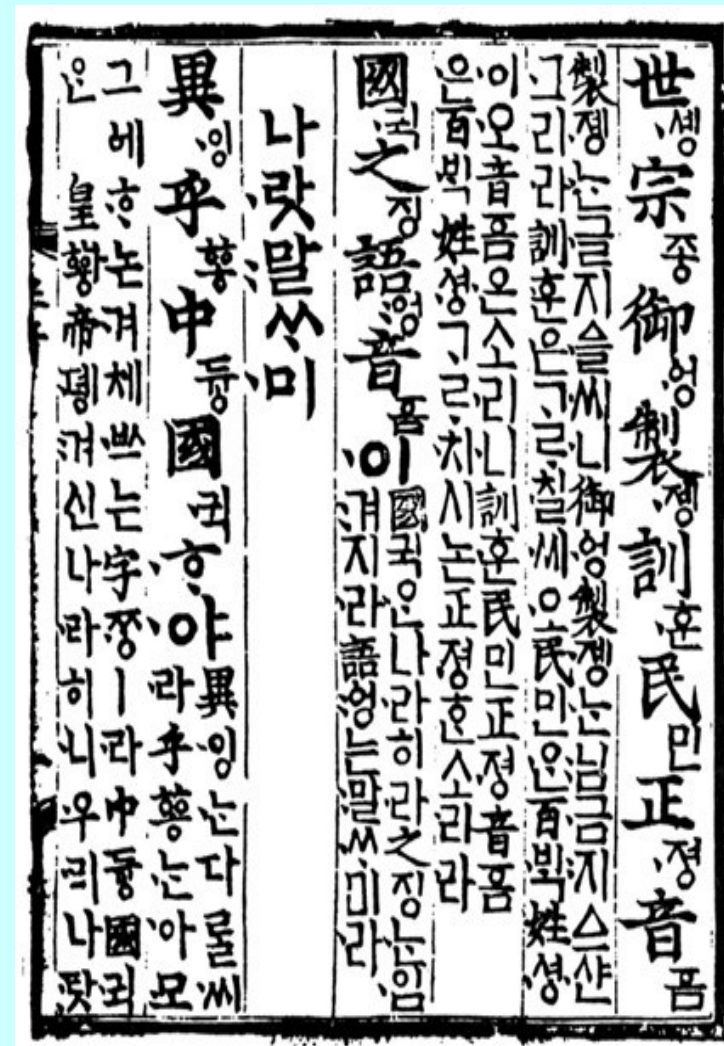 世솅宗종御ᅌᅥᆼ製졩訓훈民민正졍音ᅙᅳᆷ
製졩ᄂᆞᆫ글지ᅀᅳᆯ씨니御ᅌᅥᆼ製졩ᄂᆞᆫ님금지ᅀᅳ샨
그리라訓훈은ᄀᆞᄅᆞ칠씨오民민ᄋᆞᆫ百ᄇᆡᆨ姓셩
이오音ᅙᅳᆷ은소리니訓훈民민正졍音ᅙᅳᆷ
은百ᄇᆡᆨ姓셩ᄀᆞᄅᆞ치시논正졍ᄒᆞᆫ소리라
國귁之징語ᅌᅥᆼ音ᅙᅳᆷ이國귁ᄋᆞᆫ나라히라之징ᄂᆞᆫ입
겨지라語ᅌᅥᆼ는말ᄊᆞ미라
나랏말ᄊᆞ미
異잉乎ᅘᅩᆼ中듕國귁ᄒᆞ야異잉ᄂᆞᆫ다ᄅᆞᆯ씨
라乎ᅘᅩᆼᄂᆞᆫ아모
그ᅌᅦᄒᆞ논겨체ᄡᅳ는字ᄍᆞᆼㅣ라中듕國귁
ᄋᆞᆫ 皇ᅘᅪᆼ帝뎽겨신나라히니우리나랏